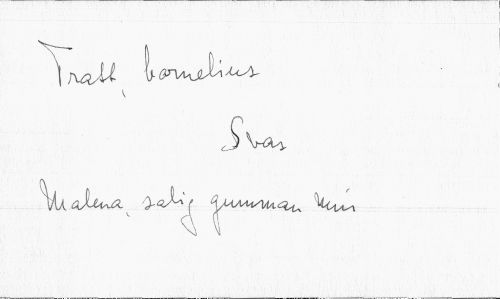 Tratt, Cornelius
Svar
Malena, salig gumman min